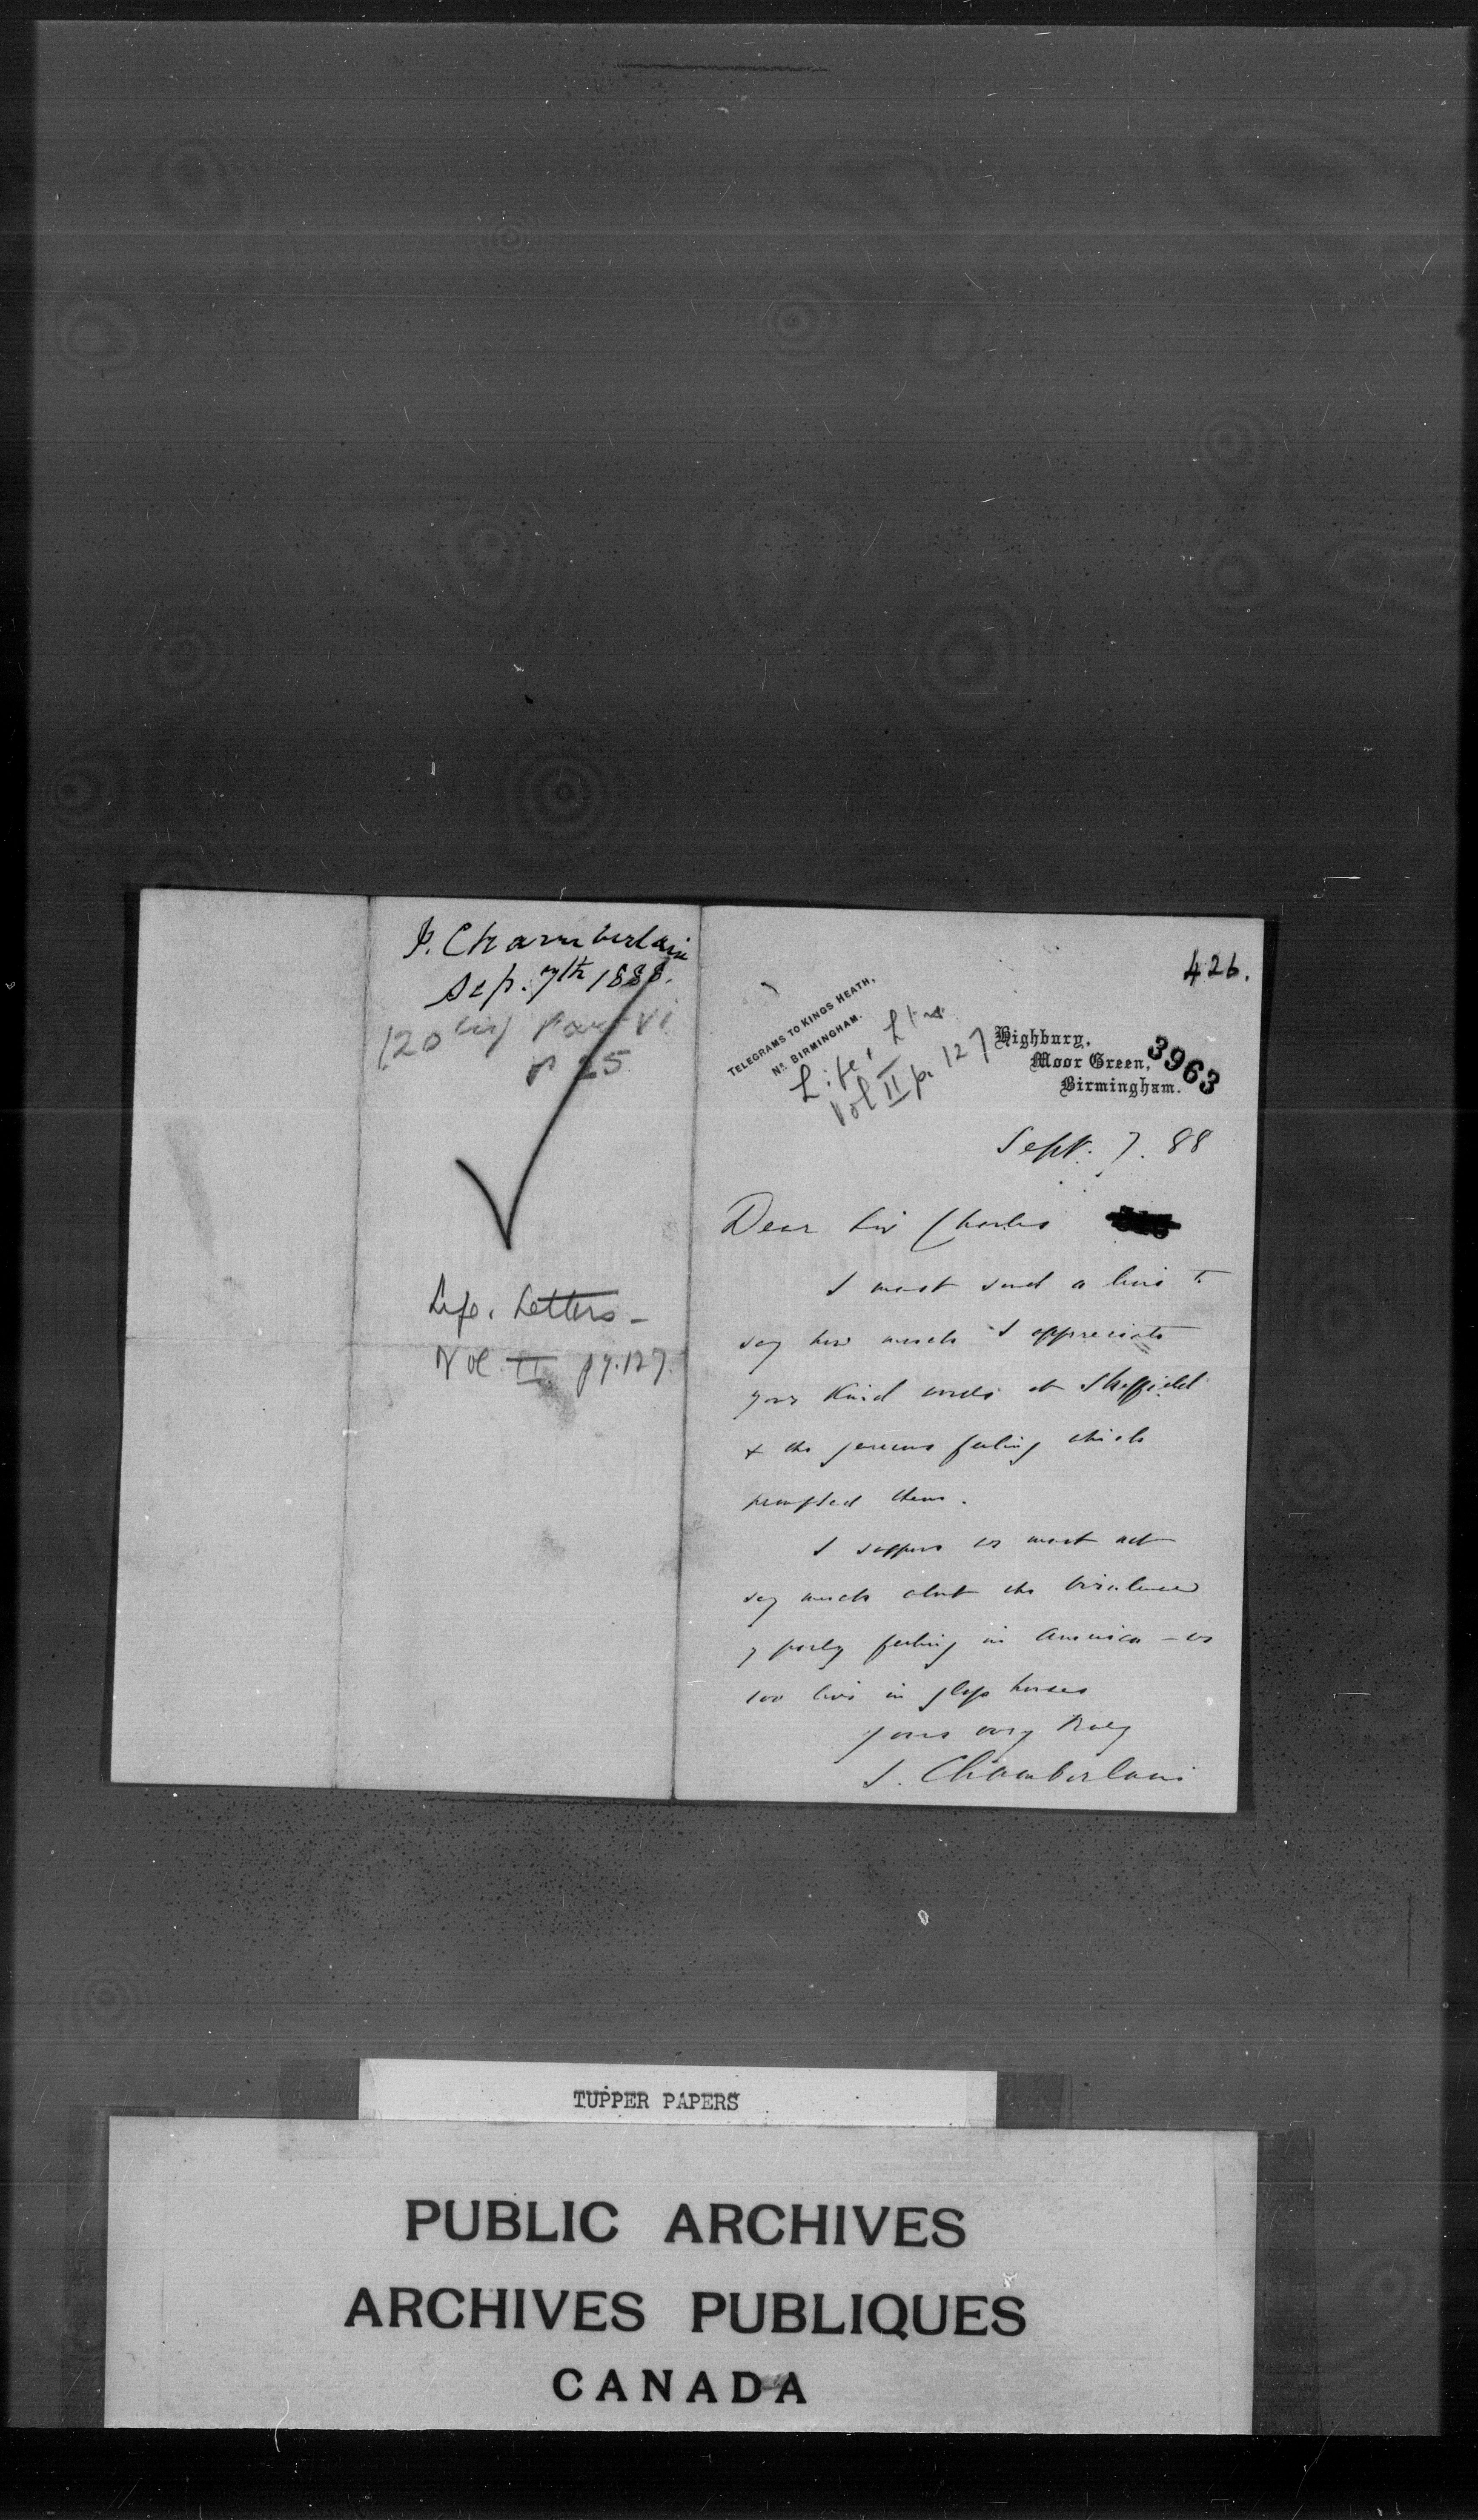 J. Chamberlain
Sep. 7th 1888.
Part VI
p 25
Life. Letters -
Vol II pg. 127.
426.
TELEGRAMS TO KINGS HEATH,
Nr. BIRMINGHAM.
Life, Ltrs
Vol II p. 127
Highbury,
Moor Green,
Birmingham.
3963
Sept. 7. 88
Dear Sir Charles
I must send a line to
say how much I appreciate
your kind words at Sheffield
& the generous feeling which
prompted them.
I suppose we must not
say much about the virulence
of party feeling in America - we
too live in glass houses
Yours very truly
J. Chamberlain
TUPPER PAPERS
PUBLIC ARCHIVES
ARCHIVES PUBLIQUES
CANADA